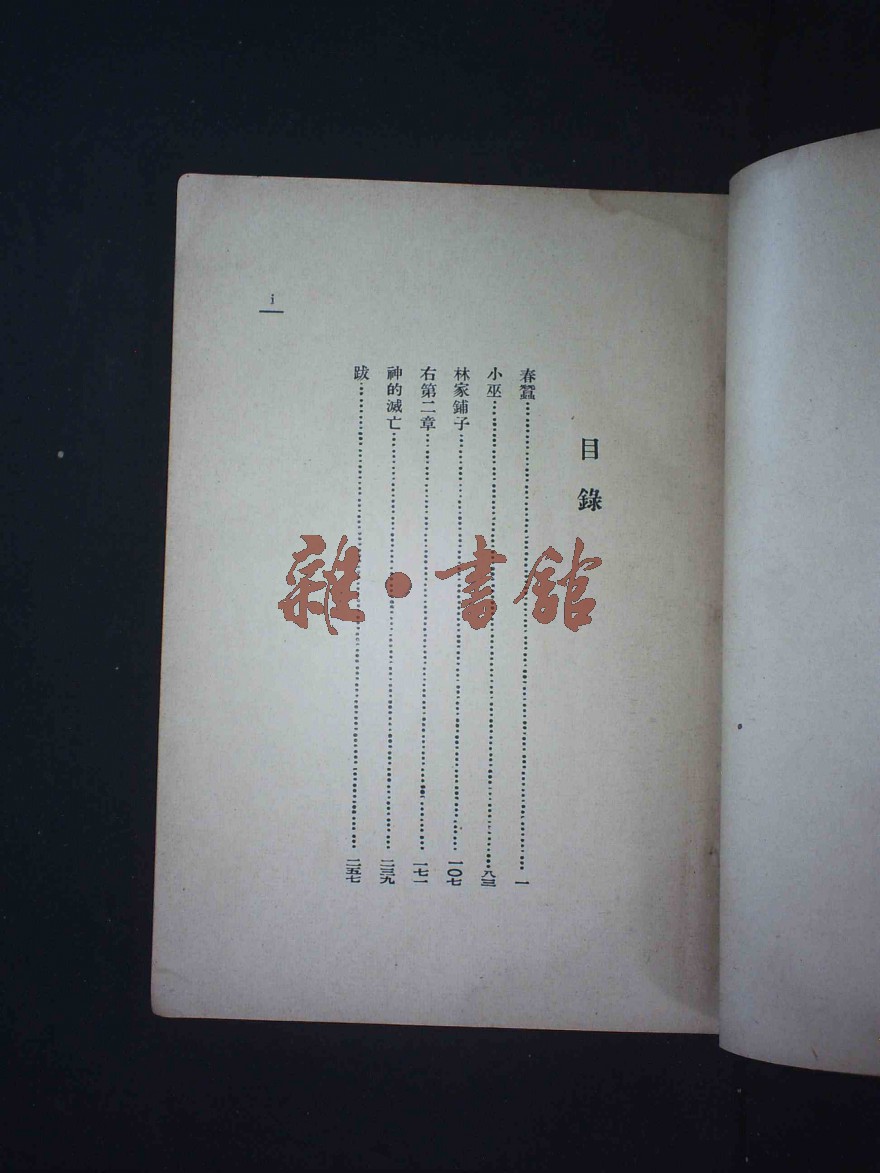 目錄
春蠶…………一
小巫…………八三
林家鋪子…………一〇七
右第二章…………一七一
神的滅亡…………二三九
跋…………二五七
i
雜·書館